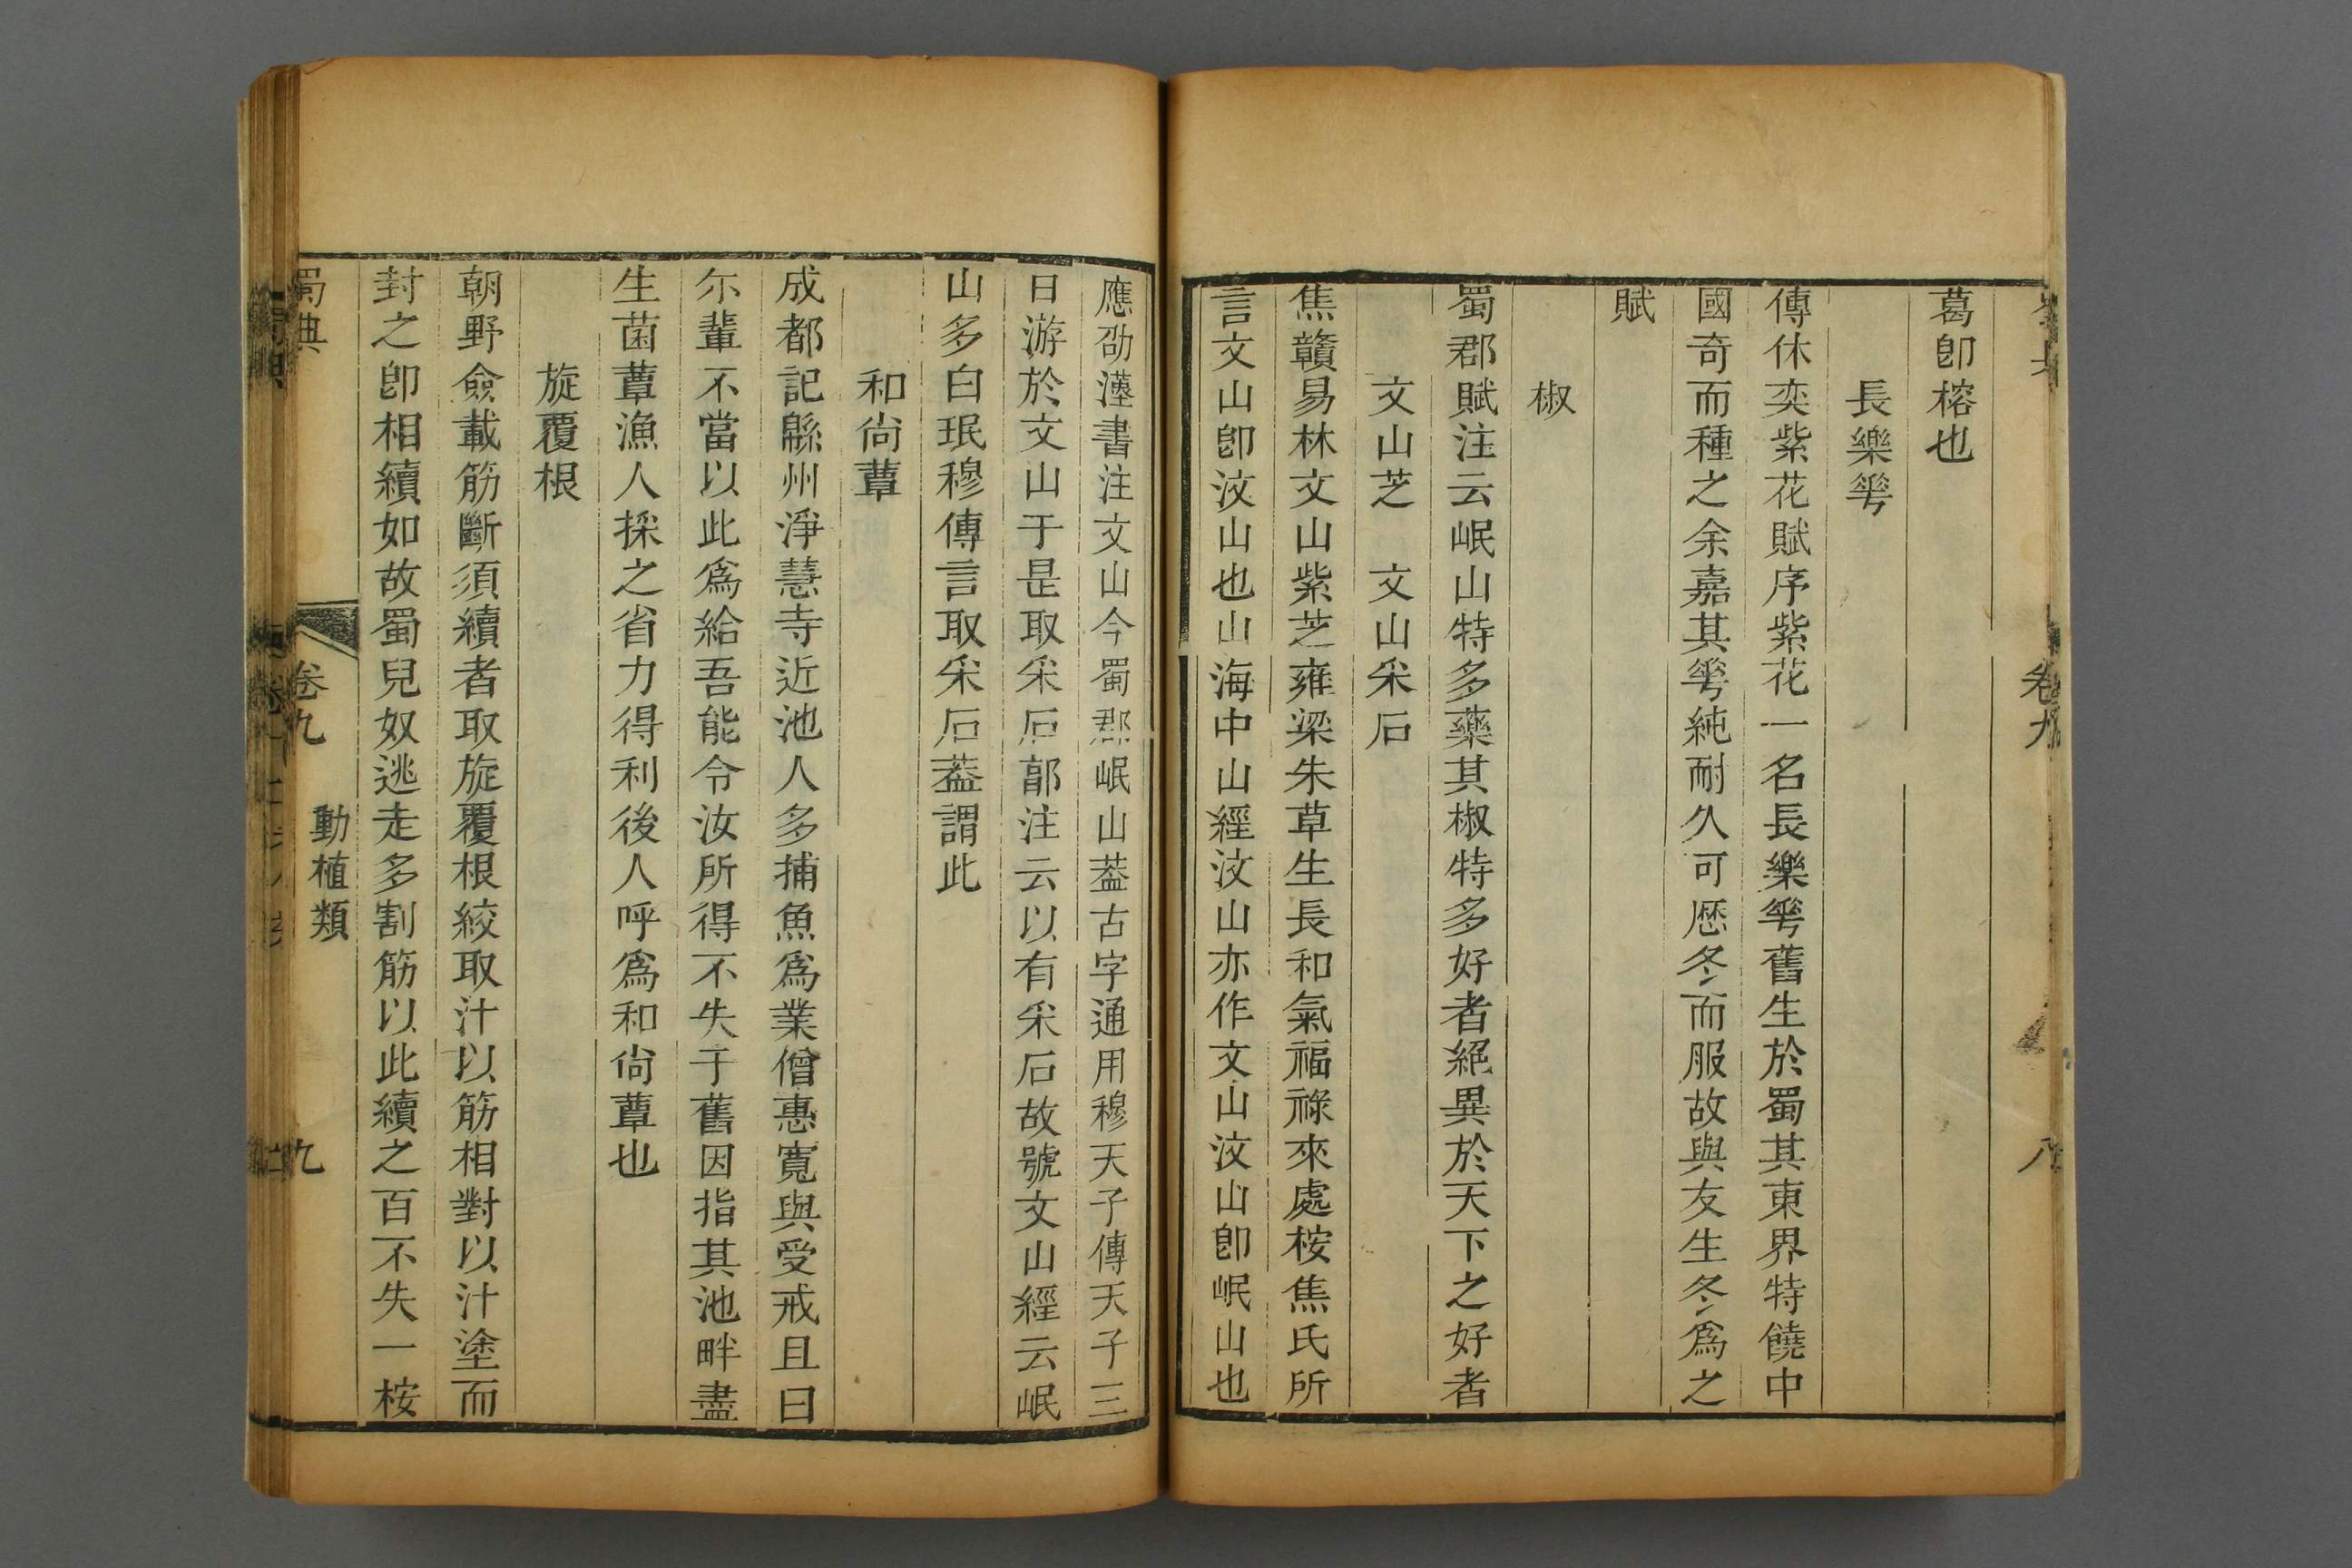 葛卽榕也
長樂蕚
傅休奕紫花賦序紫花一名長樂蕚舊生於蜀其東界特饒中
國奇而種之余嘉其蕚純耐久可歴冬而服故與友生冬爲之
賦
椒
蜀郡賦注云岷山特多藥其椒特多好者絕異於天下之好者
文山芝　文山采石
焦贛易林文山紫芝雍梁朱草生長和氣福祿來處桉焦氏所
言文山卽汶山也山海中山經汶山亦作文山汶山卽岷山也
卷九
八
應劭漢書注文山今蜀郡岷山葢古字通用穆天子傳天子三
日游於文山于是取采石郭注云以有采石故號文山經云岷
山多白珉穆傳言取采石葢謂此
和尙蕈
成都記緜州淨慧寺近池人多捕魚爲業僧惠寛與受戒且曰
尓輩不當以此爲給吾能令汝所得不失于舊因指其池畔盡
生菌蕈漁人採之省力得利後人呼爲和尙蕈也
旋覆根
朝野僉載筋斷須續者取旋覆根絞取汁以筋相對以汁塗而
封之卽相續如故蜀兒奴逃走多割筋以此續之百不失一桉
蜀典
卷九
動植類
九